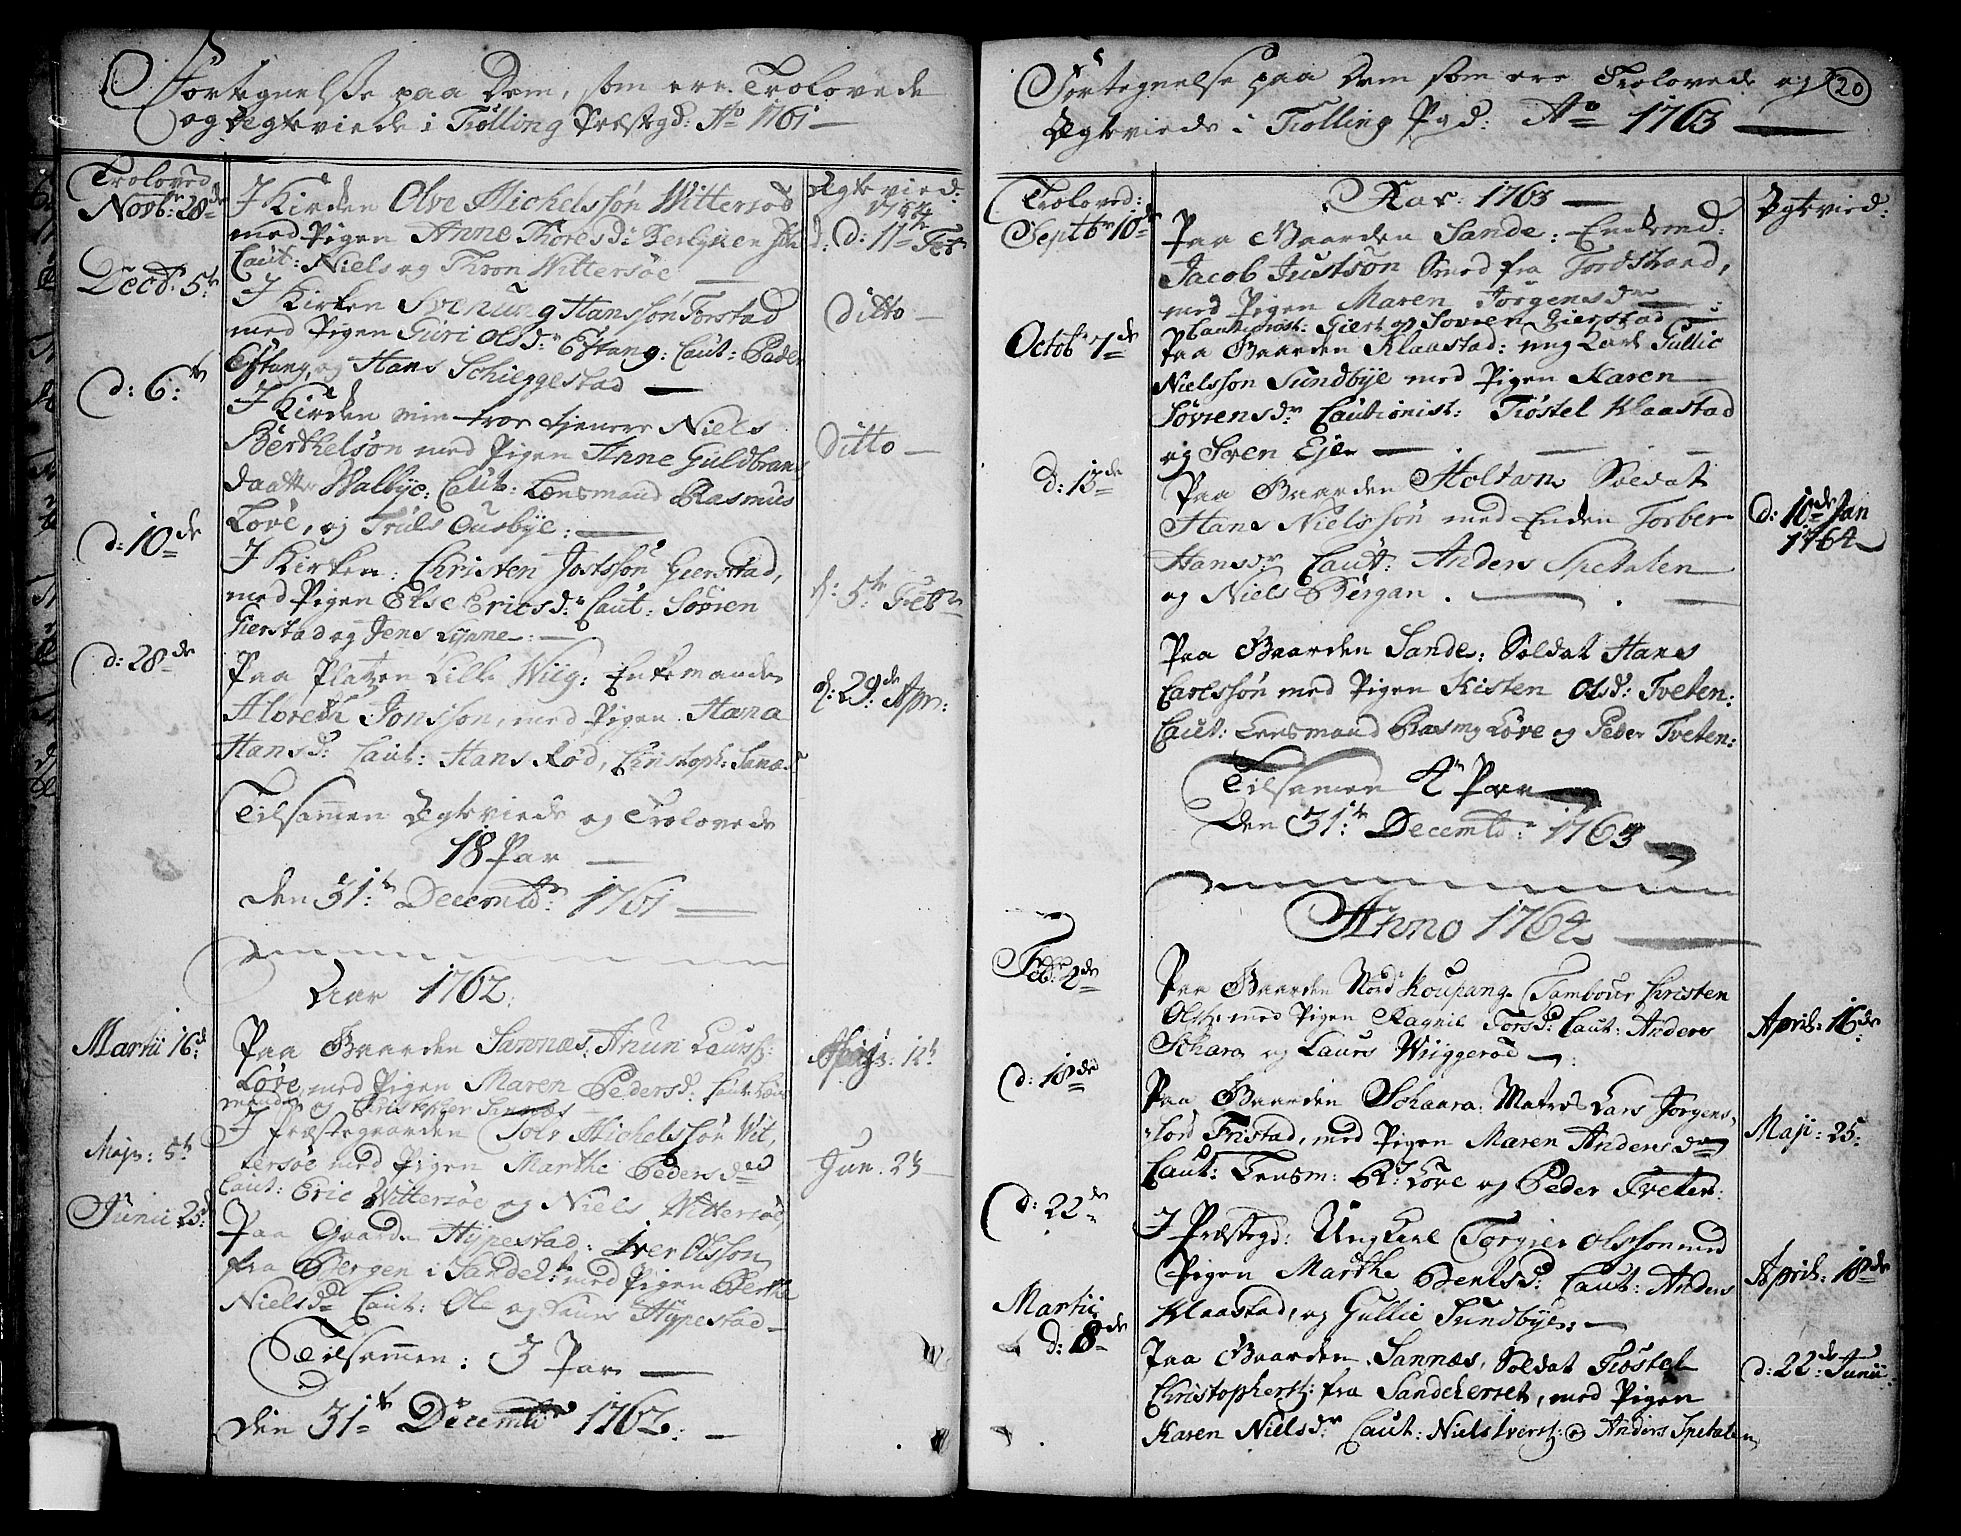 Fortegnelse paa Dem, som ere Trolovede
og Ægteviede i Tiølling Præstegd: Ao 1761
Troloved
Novb: 28de
I Kirken Olve Michelssøn Wittersøe
med Pigen Anne Thoresd:
Caut: Niels og Thron Wittersøe
Ægtevied:
d: 11te Feb
Decb: 5te
I Kirken Svenung Hanssøn Forstad
med Pigen Guri Olsd: Eftang: Caut: Peder
Eftang, og Hans Schieggestad
Ditto
d: 6te
I Kirken min troe tjenere Niels
Berthelsøn med Pigen Anne Guldbrans
daatter Walbye: Caut: Lensmand Rasmus
Løve, og Truls Ousbye:
Ditto
d: 10de
I Kirken: Christen Jostssøn Gierstad,
med Pigen Else Ericsd: Caut: Søvren
Gierstad og Jens Lynne:
d: 5te Febr
d: 28de
Paa Platzen Lille Wiig: Enkemanden
Alvreth Jonssøn, med Pigen Hana
Hansd: Caut: Hans Rød, Christoph: Sanæs
d: 29de Apr:
Tilsammen Ægteviede og Trolovede
18 Par
den 31te Decembr: 1761
Aar 1762.
Martii 16d:
Paa Gaarden Sannæs: Anun Laurs:
Løve, med Pigen Maren Pedersd: Caut: Lens
manden og Christopher Sannæs
12t
Maji: 5t
I Præstegaarden Tolv Michelssøn Wit,
tersøe med Pigen Marthe Pedersd
Caut: Eric Wittersøe og Niels Wittersøe
Jun. 23
Junii 25d
Paa Gaarden Hypestad: Iver Olsson
fra Bergen i Sandeh: med Pigen Berthe
Nielsd: Caut: Ole og Laurs Hypestad
Tilsammen: 3 Par
den 31te Decembr 1762:
20
Fortegnelse paa Dem som ere Trolovede og
Ægteviede i Tiølling Pgd: Ao 1763
Troloved:
Aar: 1763
Ægtevied:
Septbr 10de
Paa Gaarden Sande: Enkemd:
Jacob Justsøn Smed fra Fordstrand,
med Pigen Maren Jørgensdr
Cautionist: Giert og Søvren Gierstad
Octob 7de
Paa Gaarden Klaastad: ung Karl Gullic
Nielssøn Sundbye med Pigen Karen
Søvrensdr Cautionist: Tiøstel Klaastad
og Sven Eje
d: 13de
Paa Gaarden Holtan Soldat
Hans Nielssøn med Enken Torber
Hansdr Caut: Anders Spetalen
og Niels Bergan.
d: 10de Jan
1764
Paa Gaarden Sande: Soldat Hans
Carlssøn med Pigen Kisten Olsd: Tveten:
Caut: Lensmand Rasmg Løve og Peder Tveten:
Tilsamen 4r Par
Den 31te Decembr: 1763
Anno 1764
Feb: 2de
Paa Gaarden Nord Koupang. Tambour Christen
Ols: med Pigen Ragnil Torsd: Caut: Anders
Schara og Laurs Wiiggerød
April: 16de
d: 18de
Paa Gaarden Schaara: Matros Lars Jørgens-
søn Fristad, med Pigen Maren Andersdr
Caut: Lensm: Rs: Løve og Peder Tveten:
Maji: 25:
d: 22de
I Præstegd: Ung Karl Torgier Olsson med
Pigen Marthe Bentsd: Caut: Anders
Klaastad, og Gullic Sundbye:
April: 18de
Martii
d: 8de
Paa Gaarden Sannæs, Soldat Tiøstel
Christophers: fra Sandeherret, med Pigen
Karen Nielsdr Caut: Niels Ivers: og Anders Spetalen
d: 22de Junii